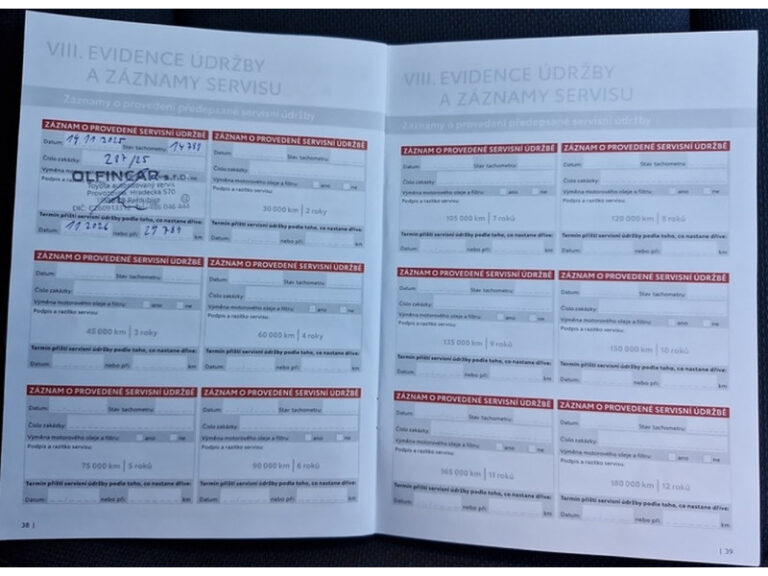 VIII. EVIDENCE ÚDRŽBY
A ZÁZNAMY SERVISU
Záznamy o provedení předepsané servisní údržby
ZÁZNAM O PROVEDENÉ SERVISNÍ ÚDRŽBĚ
Datum: 14 11 2025 Stav tachometru: 14 789
Číslo zakázky: 287/25
Výměna
OLFINCAR s.r.o.
Toyota autorizovaný servis
Hradecká 570
Termín příští servisní údržby podle toho, co nastane dříve:
Datum: 11 2026 nebo při: 29 789 km
ZÁZNAM O PROVEDENÉ SERVISNÍ ÚDRŽBĚ
Datum: Stav tachometru:
Číslo zakázky:
Výměna motorového oleje a filtru: ano ne
Podpis a razítko servisu:
30 000 km | 2 roky
Termín příští servisní údržby podle toho, co nastane dříve:
Datum: nebo při: km
ZÁZNAM O PROVEDENÉ SERVISNÍ ÚDRŽBĚ
Datum: Stav tachometru:
Číslo zakázky:
Výměna motorového oleje a filtru: ano ne
Podpis a razítko servisu:
45 000 km | 3 roky
Termín příští servisní údržby podle toho, co nastane dříve:
Datum: nebo při: km
ZÁZNAM O PROVEDENÉ SERVISNÍ ÚDRŽBĚ
Datum: Stav tachometru:
Číslo zakázky:
Výměna motorového oleje a filtru: ano ne
Podpis a razítko servisu:
60 000 km | 4 roky
Termín příští servisní údržby podle toho, co nastane dříve:
Datum: nebo při: km
ZÁZNAM O PROVEDENÉ SERVISNÍ ÚDRŽBĚ
Datum: Stav tachometru:
Číslo zakázky:
Výměna motorového oleje a filtru: ano ne
Podpis a razítko servisu:
75 000 km | 5 roků
Termín příští servisní údržby podle toho, co nastane dříve:
Datum: nebo při: km
ZÁZNAM O PROVEDENÉ SERVISNÍ ÚDRŽBĚ
Datum: Stav tachometru:
Číslo zakázky:
Výměna motorového oleje a filtru: ano ne
Podpis a razítko servisu:
90 000 km | 6 roků
Termín příští servisní údržby podle toho, co nastane dříve:
Datum: nebo při: km
38 |
VIII. EVIDENCE ÚDRŽBY
A ZÁZNAMY SERVISU
Záznamy o provedení předepsané servisní údržby
ZÁZNAM O PROVEDENÉ SERVISNÍ ÚDRŽBĚ
Datum: Stav tachometru:
Číslo zakázky:
Výměna motorového oleje a filtru: ano ne
Podpis a razítko servisu:
105 000 km | 7 roků
Termín příští servisní údržby podle toho, co nastane dříve:
Datum: nebo při: km
ZÁZNAM O PROVEDENÉ SERVISNÍ ÚDRŽBĚ
Datum: Stav tachometru:
Číslo zakázky:
Výměna motorového oleje a filtru: ano ne
Podpis a razítko servisu:
120 000 km | 8 roků
Termín příští servisní údržby podle toho, co nastane dříve:
Datum: nebo při: km
ZÁZNAM O PROVEDENÉ SERVISNÍ ÚDRŽBĚ
Datum: Stav tachometru:
Číslo zakázky:
Výměna motorového oleje a filtru: ano ne
Podpis a razítko servisu:
135 000 km | 9 roků
Termín příští servisní údržby podle toho, co nastane dříve:
Datum: nebo při: km
ZÁZNAM O PROVEDENÉ SERVISNÍ ÚDRŽBĚ
Datum: Stav tachometru:
Číslo zakázky:
Výměna motorového oleje a filtru: ano ne
Podpis a razítko servisu:
150 000 km | 10 roků
Termín příští servisní údržby podle toho, co nastane dříve:
Datum: nebo při: km
ZÁZNAM O PROVEDENÉ SERVISNÍ ÚDRŽBĚ
Datum: Stav tachometru:
Číslo zakázky:
Výměna motorového oleje a filtru: ano ne
Podpis a razítko servisu:
165 000 km | 11 roků
Termín příští servisní údržby podle toho, co nastane dříve:
Datum: nebo při: km
ZÁZNAM O PROVEDENÉ SERVISNÍ ÚDRŽBĚ
Datum: Stav tachometru:
Číslo zakázky:
Výměna motorového oleje a filtru: ano ne
Podpis a razítko servisu:
180 000 km | 12 roků
Termín příští servisní údržby podle toho, co nastane dříve:
Datum: nebo při: km
| 39